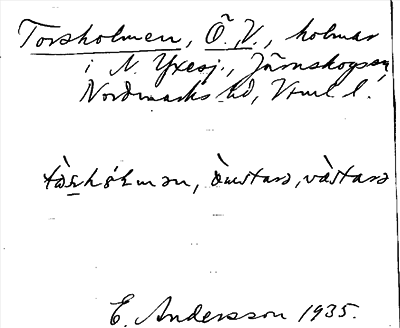 Torsholmen, Ö. V., holmar
i N. Yxesj., Järnskogsen,
Nordmarks hd, Vrml l.
tòʂhòlmən, òmstarə, våstarə
E. Andersson 1935.